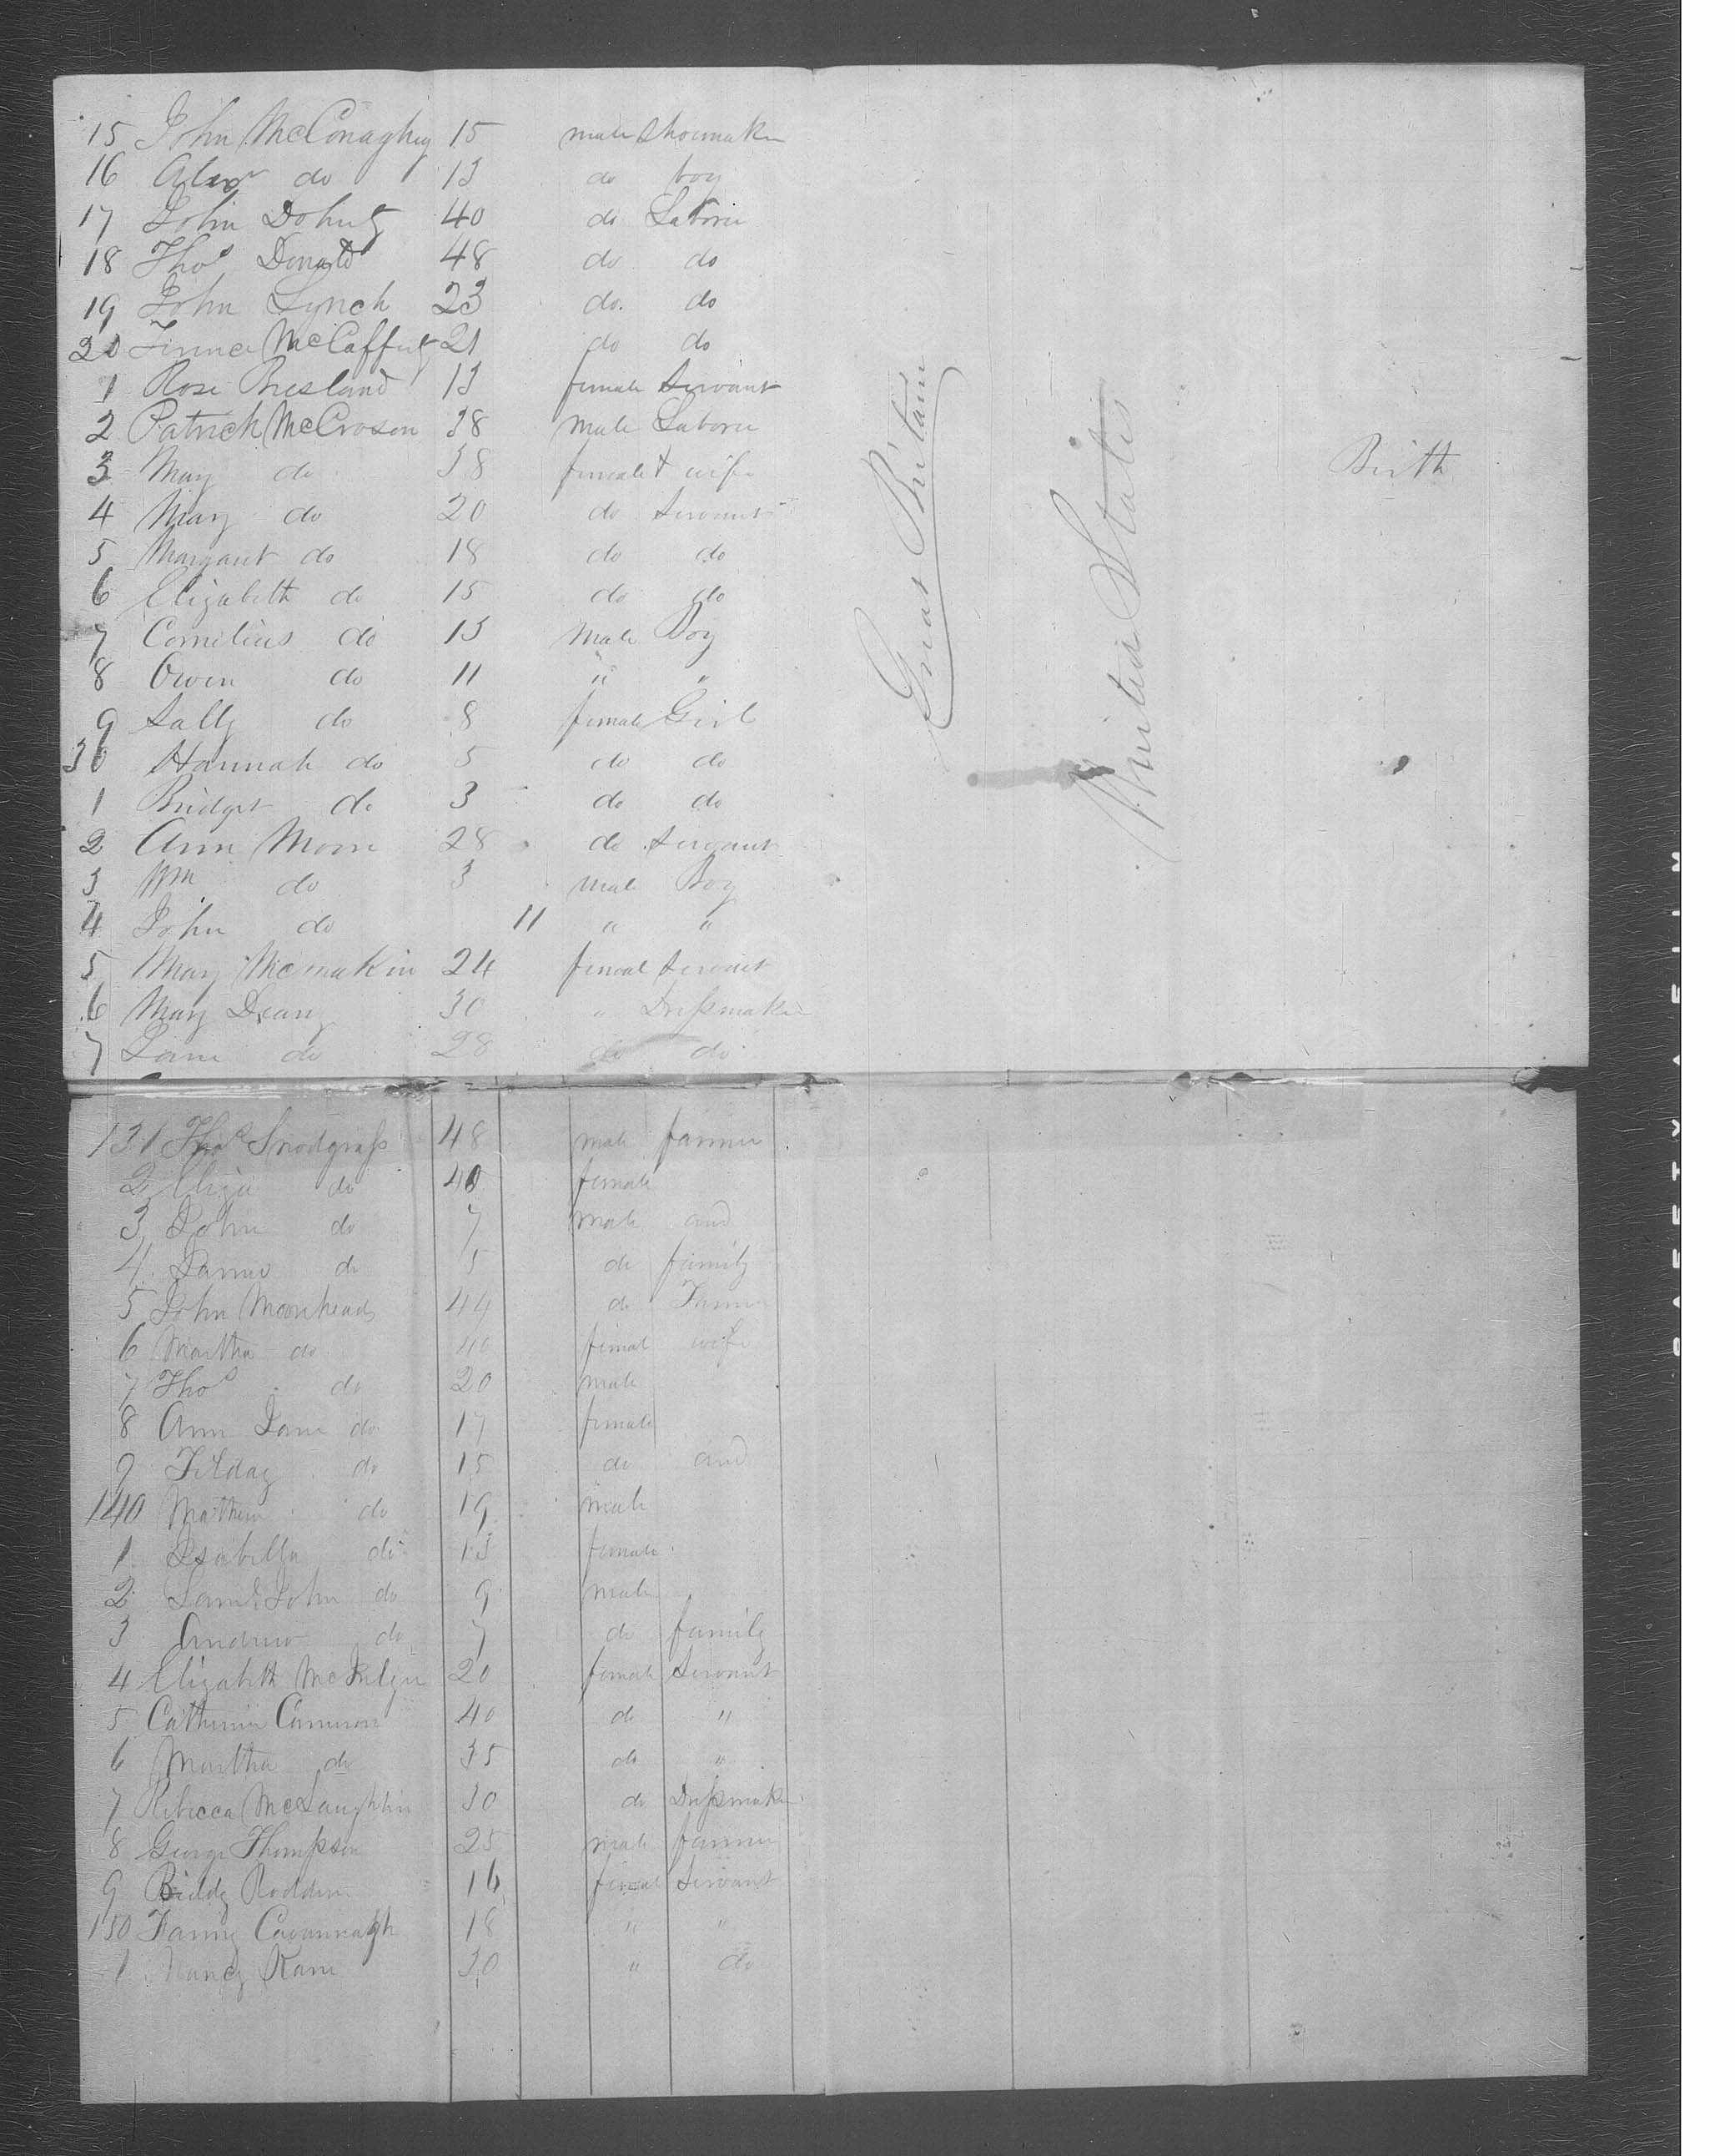 15 John McConaghey 15 male Shoemaker
16 Alexr do 13 do boy
17 John Doherty 40 do Laborer
18 Thos Donald 48 do do
19 John Lynch 23 do. do
20 McCafferty 21 do do
1 Rose Bresland 13 female Servant
2 Patrick McCroson 38 male Laborer
3 Mary do 38 female & wife
4 Mary do 20 do Servant
5 Margaret do 18 do do
6 Elizabeth do 15 do do
7 Cornelius do 13 Male Boy
8 Owen do 11 " "
9 Sally do 8 female Girl
30 Hannah do 5 do do
1 Bridget do 3 do do
2 Ann Moore 28 do Servant
3 Wm do 3 male Boy
4 John do 11 " "
5 Mary McMakin 24 female Servant
6 Mary Deany 30 " Dressmaker
7 Jane do 28 do do
Great Britain
United States
Birth
131 Thos Snodgrass 48 male farmer
2 Eliza do 40 female
3 John do 7 male and
4 James do 5 do family
5 John Moorehead 44 do Farmer
6 Martha do 40 female wife
7 Thos do 20 male
8 Ann Jane do 17 female
9 do 15 do and
140 Mathew do 19 male
1 Isabella do 13 female
2 Saml John do 9 male
3 Andrew do 7 do family
4 Elizabeth 20 female Servant
5 Catherine Cameron 40 do "
6 Martha do 35 do "
7 Rebecca McLaughlin 30 do Dressmaker
8 George Thompson 25 male farmer
9 Biddy Rodden 16 female Servant
150 Fanny Cavannagh 18 " "
1 Nancy Kane 30 " do